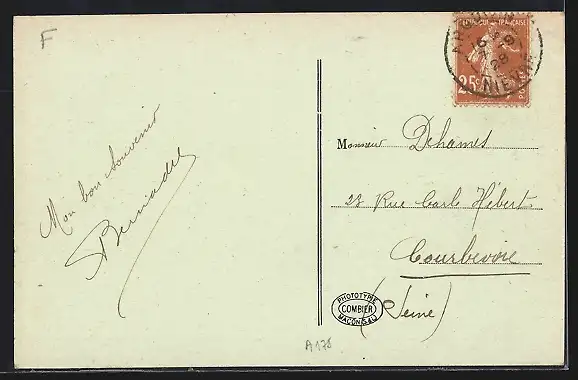 F
Mon bon Souvenir
Bernadel
RÉPUBLIQUE FRANÇAISE
25c
POSTES
NIÈVRE
Monsieur Dehames
23 Rue Carle Hébert
Courbevoie
(Seine)
PHOTOTYPIE
COMBIER
MACON (S&L)
A178